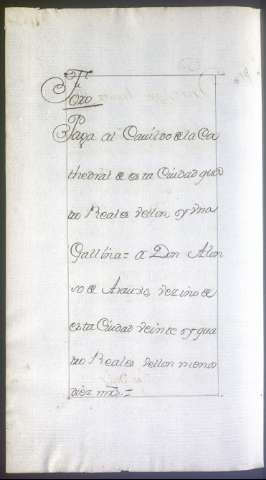 Foro
Paga al Cavildo de la Ca
thedral de esta Ciudad qua
tro Reales vellon, y vna
Gallina= a Don Alon
so de Arauxo, vezino de
esta Ciudad veinte y qua
tro Reales vellon menos
diez mrs=